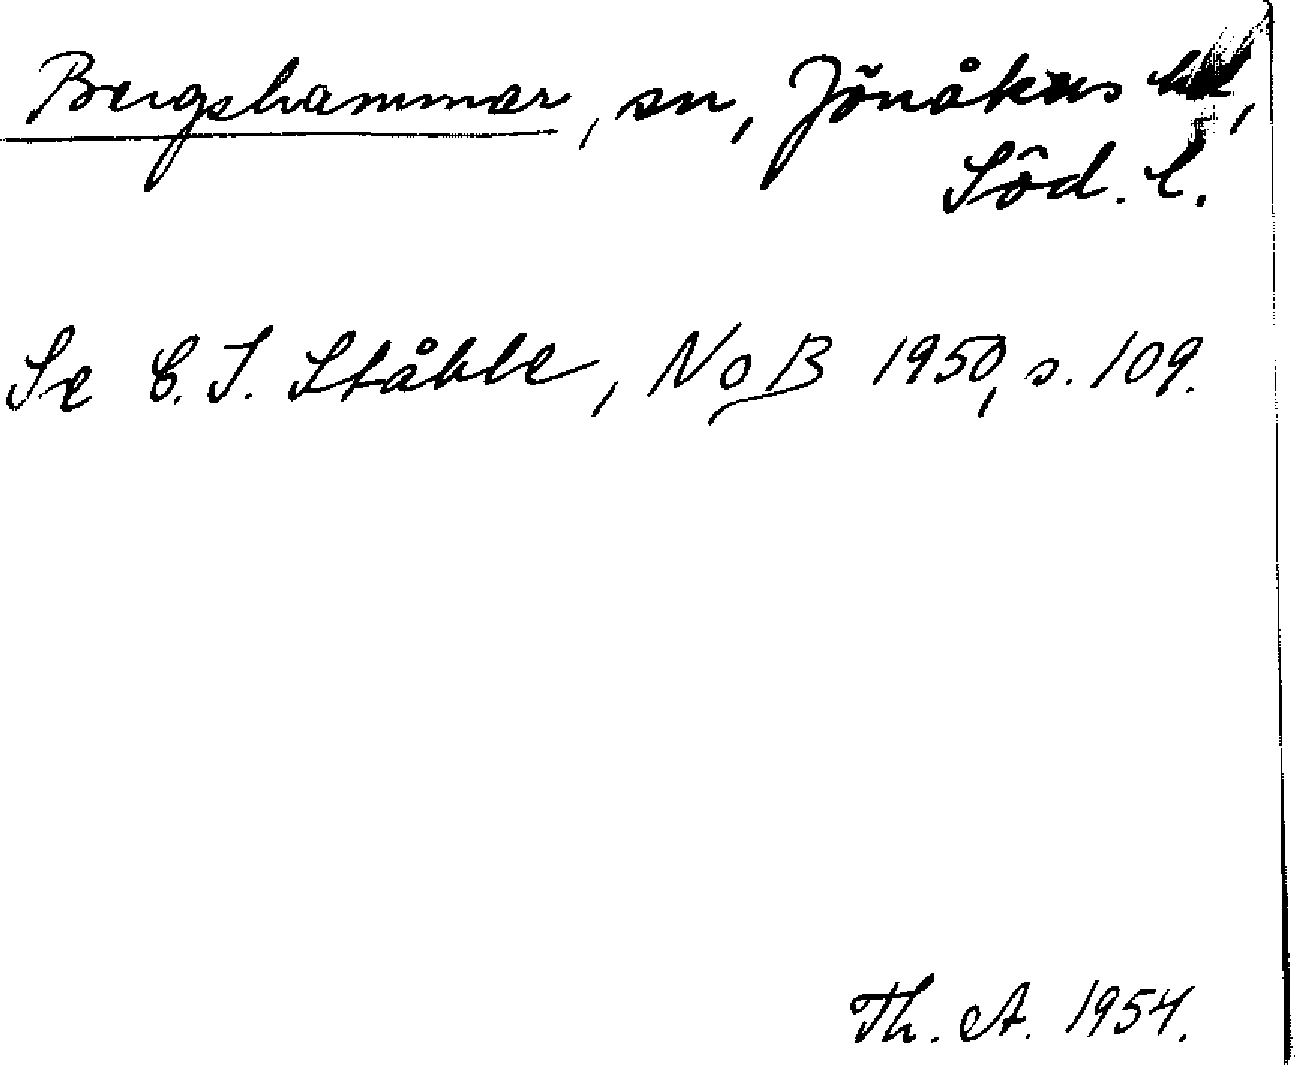 Bergshammar, sn, Jönåkers hd,
Söd. l.
Se C. I. Ståhle, NoB 1950, s. 109.
Th. A. 1954.